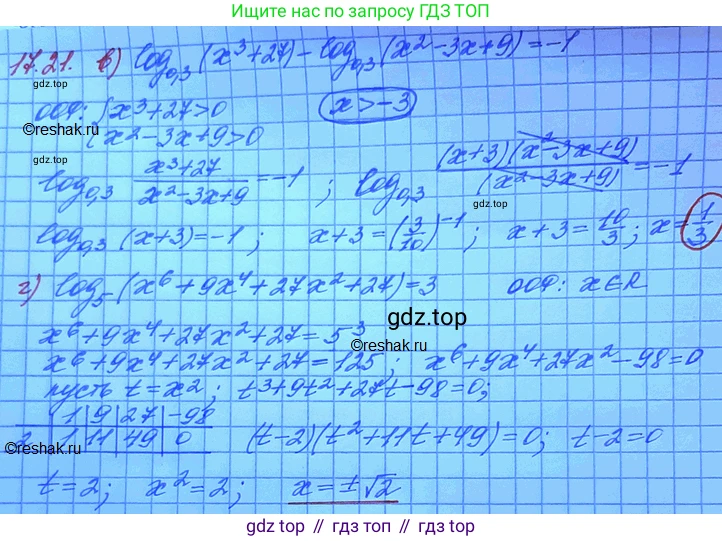 Ищите нас по запросу ГДЗ ТОП
17.21. в) log₀,₃ (x³+27) - log₀,₃ (x²-3x+9) = -1
gdz.top
ООФ: { x³+27>0 x>-3
©reshak.ru
x²-3x+9>0
gdz.top
log₀,₃ (x³+27)/(x²-3x+9) = -1 ; log₀,₃ ((x+3)(x²-3x+9))/((x²-3x+9)) = -1
gdz.top
log₀,₃ (x+3) = -1 ; x+3 = (3/10)⁻¹ ; x+3 = 10/3 ; x = 1/3
г) log₅ (x⁶+9x⁴+27x²+27) = 3 ООФ: x∈R
gdz.top
x⁶+9x⁴+27x²+27 = 5³
©reshak.ru
x⁶+9x⁴+27x²+27 = 125 ; x⁶+9x⁴+27x²-98 = 0
пусть t = x² ; t³+9t²+27t-98 = 0;
1 | 9 | 27 | -98
2 | 1 | 11 | 49 | 0 (t-2)(t²+11t+49) = 0; t-2=0
©reshak.ru
t=2; x²=2; x=±√2
gdz.top // гдз топ // гдз.топ